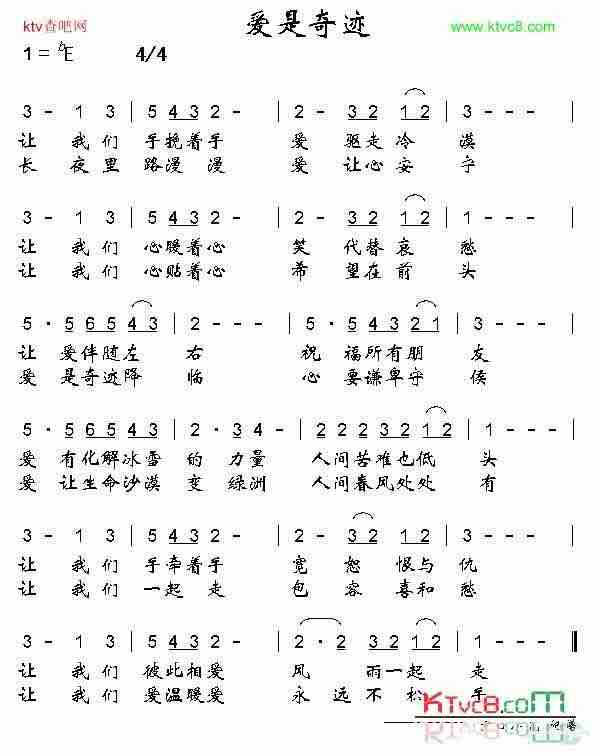 ktv查吧网
爱是奇迹
www.ktvc8.com
1 = ♭E 4/4
3 - 1 3 | 5 4 3 2 - | 2 - 3 2 1 2 | 3 - - - |
让 我们 手挽着手 爱 驱走冷 漠
长 夜里 路漫 漫 爱 让心安 宁
3 - 1 3 | 5 4 3 2 - | 2 - 3 2 1 2 | 1 - - - |
让 我们 心暖着心 笑 代替哀 愁
让 我们 心贴着心 希 望在前 头
5 · 5 6 5 4 3 | 2 - - - | 5 · 5 4 3 2 1 | 3 - - - |
让 爱伴随左 右 祝 福所有朋 友
爱 是奇迹降 临 心 要谦卑守 候
5 · 5 6 5 4 3 | 2 · 3 4 - | 2 2 2 3 2 1 2 | 2 - - - |
爱 有化解冰雪 的 力量 人间苦难也低 头
爱 让生命沙漠 变 绿洲 人间春风处处 有
3 - 1 3 | 5 4 3 2 - | 2 - 3 2 1 2 | 3 - - - |
让 我们 手牵着手 宽 恕 恨与 仇
让 我们 一起 走 包 容 喜和 愁
3 - 1 3 | 5 4 3 2 - | 2 · 2 3 2 1 2 | 1 - - - ‖
让 我们 彼此相爱 风 雨一起 走
让 我们 爱温暖爱 永 远不松 手
KTvc8.com
记谱